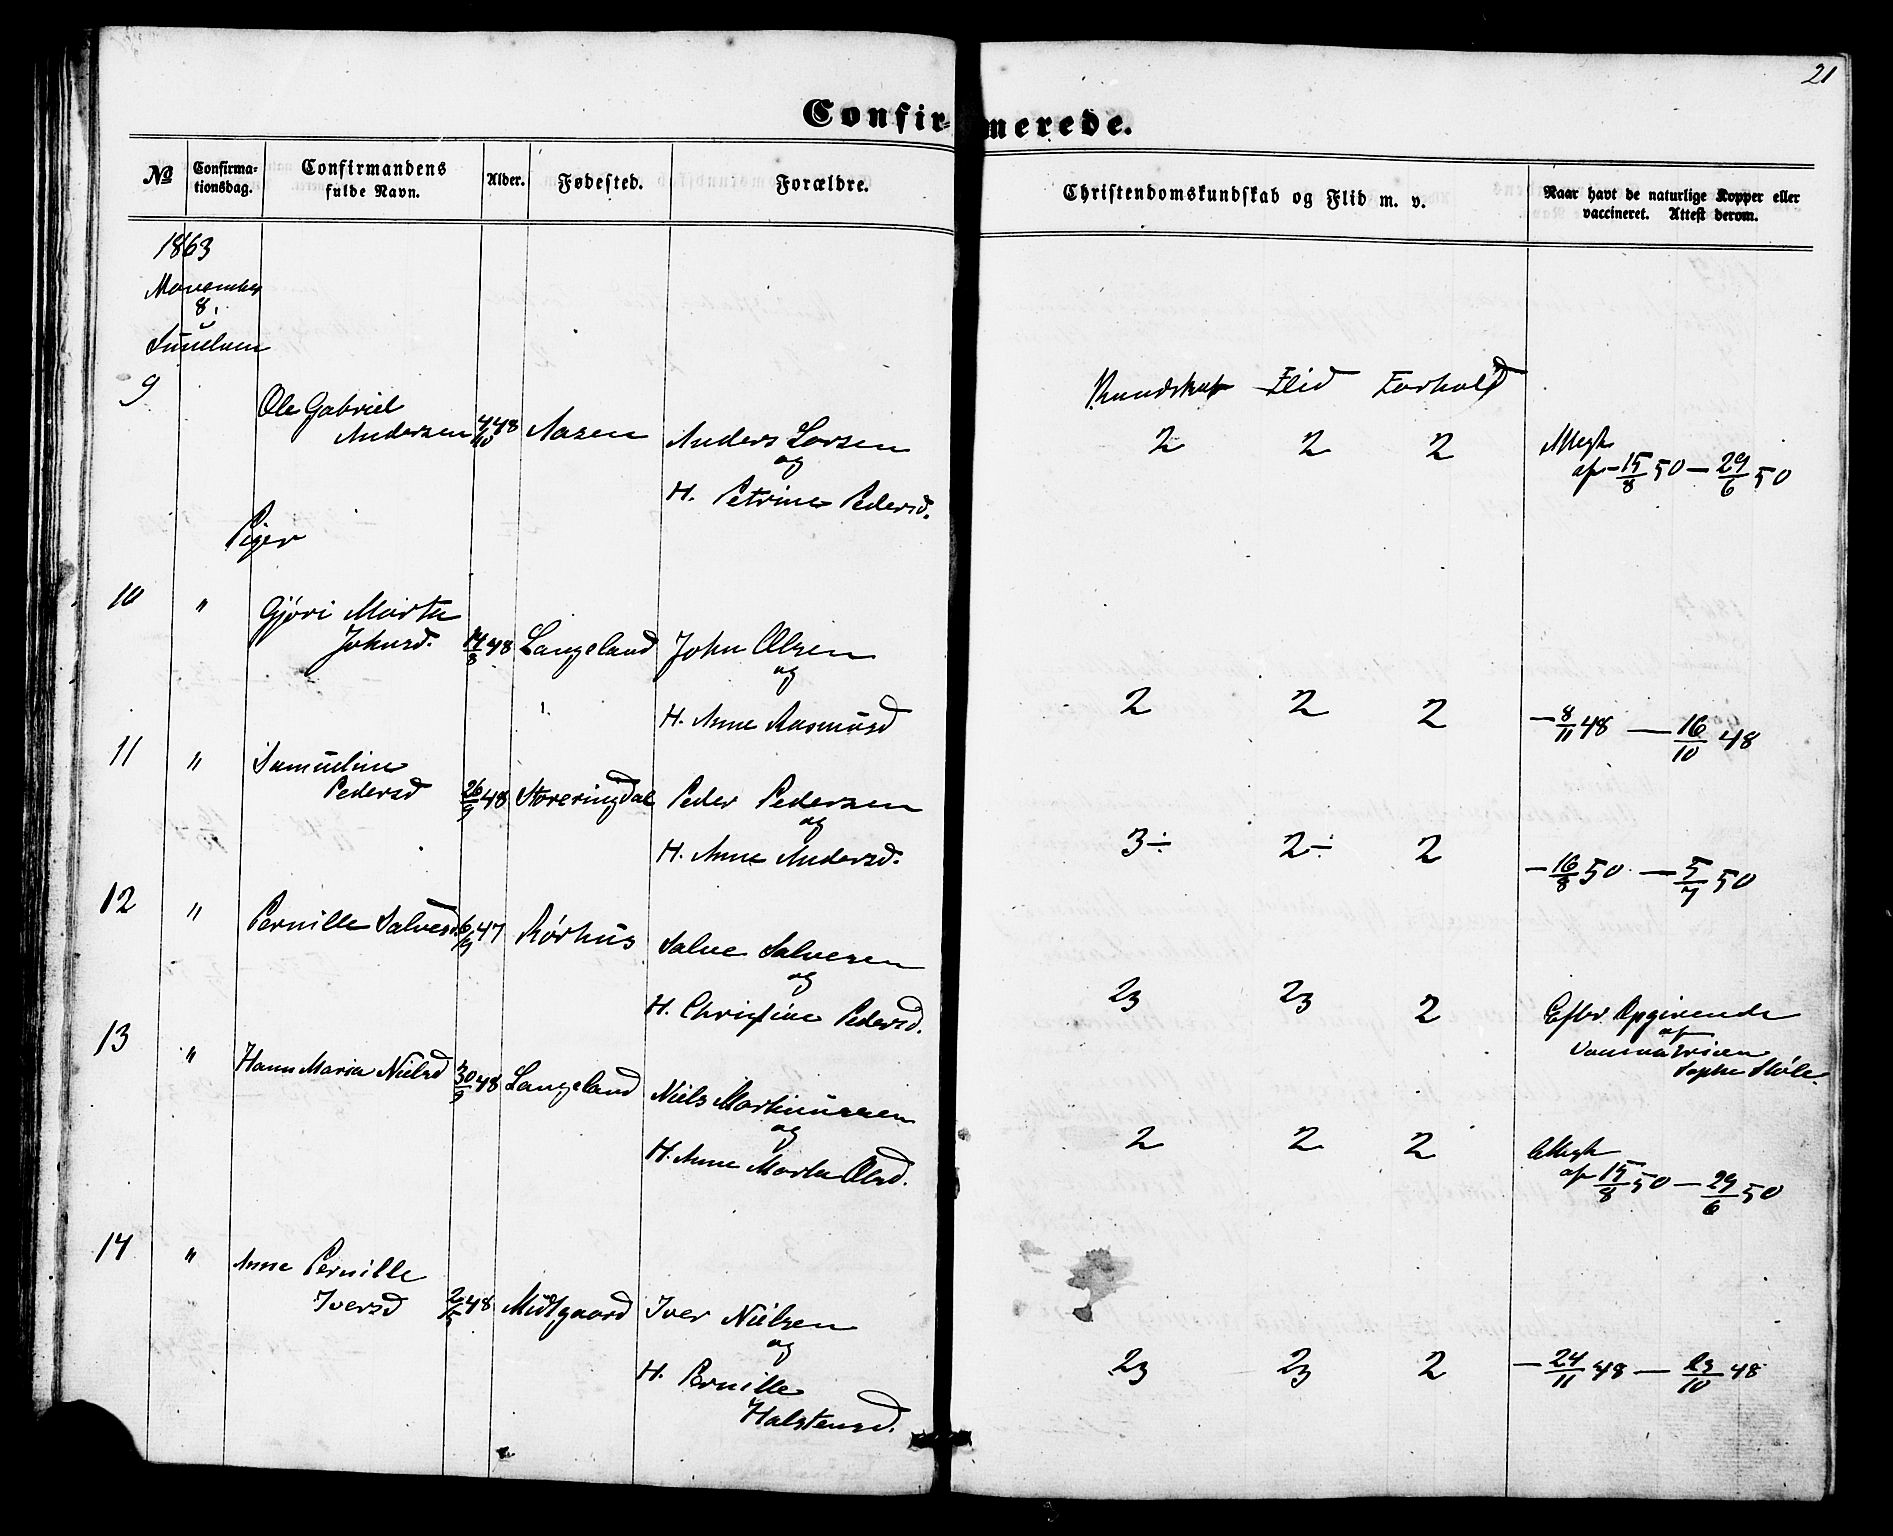 21
Confirmerede.
No
Confirmationsdag.
Confirmandens fulde Navn.
Alder.
Fødested.
Forældre.
Christendomskundskab og Flid m. v.
Naar havt de naturlige Kopper eller vaccineret. Attest derom.
1863
November
8.
Kundskab Flid Forhold
9 Ole Gabriel
Andersen 4/10 48 Aasen Anders Larsen
og
H. Petrine Pedersd.
2 2 2 Attest
af 15/8 50 — 29/6 50
Piger
10 " Gjøri Marta
Johnsd. 14/8 48 Langeland John Olsen
og
H. Anne Rasmusd
2 2 2 — 8/11 48 — 16/10 48
11 " Samueline
Pedersd 26/9 48 Storeringdal Peder Pedersen
og
H. Anne Andersd.
3÷ 2÷ 2 — 16/8 50 — 5/7 50
12 " Pernille Salvesd 6/9 47 Rørhus Salve Salvesen
og
H. Christine Pedersd.
23 23 2 Efter Opgivende
af
Sophe
13 " Hanne Maria Nielsd 30/9 48 Langeland Niels Martinussen
og
H. Anne Marta Olsd.
2 2 2 Attest
af 15/8 50 — 29/6 50
14 " Anne Pernille
Iversd 2/5 48 Midtgaard Iver Nielsen
og
H. Pernille
Halstensd.
23 23 2 — 24/11 48 — 23/10 48